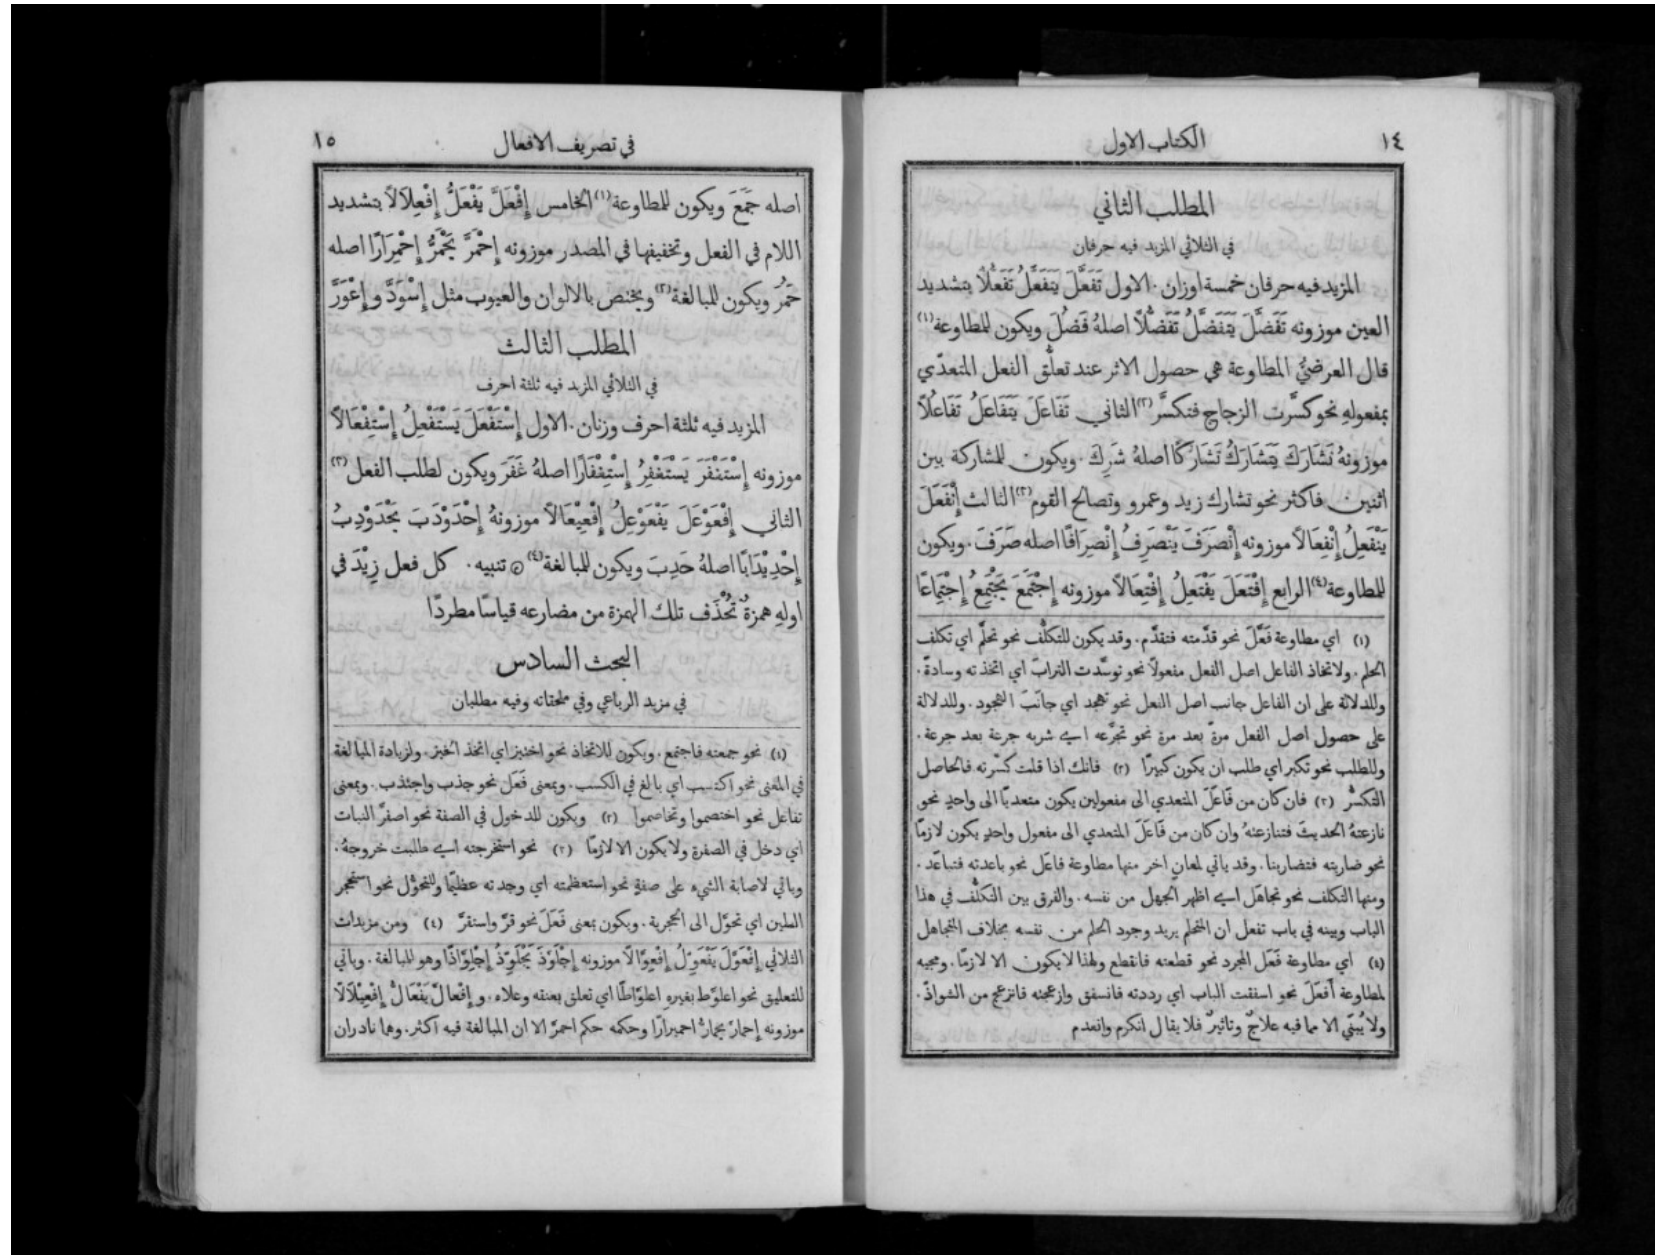 ١٤
الكتاب الاول
المطلب الثاني
في الثلاثي المزيد فيه حرفان
المزيد فيه حرفان خمسة اوزان. الاول تَفَعَّلَ يَتَفَعَّلُ تَفَعُّلاً بتشديد
العين موزونه تَفَضَّلَ يَتَفَضَّلُ تَفَضُّلاً اصلهُ فَضُلَ ويكون للمطاوعة (١)
قال العرضيُّ المطاوعة هي حصول الاثر عند تعلُّق الفعل المتعدّي
بمفعولهِ نحو كسَّرت الزجاج فتكسَّر (٢) الثاني تَفَاعَلَ يَتَفَاعَلُ تَفَاعُلاً
موزونهُ تَشَارَكَ يَتَشَارَكُ تَشَارُكًا اصلهُ شَرِكَ. ويكون للمشاركة بين
اثنين فاكثر نحو تشارك زيد وعمرو وتصالح القوم (٣) الثالث إِنْفَعَلَ
يَنْفَعِلُ إِنْفِعَالاً موزونه إِنْصَرَفَ يَنْصَرِفُ إِنْصِرَافًا اصله صَرَفَ. ويكون
للمطاوعة (٤) الرابع إِفْتَعَلَ يَفْتَعِلُ إِفْتِعَالاً موزونه إِجْتَمَعَ يَجْتَمِعُ إِجْتِمَاعًا
(١) اي مطاوعة فَعَّلَ نحو قدَّمته فتقدَّم. وقد يكون للتكلُّف نحو تحلَّم اي تكلف
الحلم. ولاتخاذ الفاعل اصل الفعل مفعولاً نحو توسَّدت الترابَ اي اتخذته وسادةً.
وللدلالة على ان الفاعل جانب اصل الفعل نحو تهجد اي جانَبَ الهجود. وللدلالة
على حصول اصل الفعل مرةً بعد مرة نحو تجرَّعه اي شربه جرعة بعد جرعة.
وللطلب نحو تكبر اي طلب ان يكون كبيرًا (٢) فانك اذا قلت كسَّرته فالحاصل
التكسُّر (٣) فان كان من فَاعَلَ المتعدي الى مفعولين يكون متعديًا الى واحدٍ نحو
نازعتهُ الحديثَ فتنازعتهُ وان كان من فَاعَلَ المتعدي الى مفعول واحدٍ يكون لازمًا
نحو ضاربته فتضاربنا. وقد ياتي لمعانٍ اخر منها مطاوعة فاعَل نحو باعدته فتباعَد.
ومنها التكلف نحو تجاهَل اي اظهر الجهل من نفسه. والفرق بين التكلُّف في هذا
الباب وبينه في باب تفعل ان المتحلم يريد وجود الحلم من نفسه بخلاف المتجاهل
(٤) اي مطاوعة فَعَل المجرد نحو قطعته فانقطع ولهذا لا يكون الا لازمًا. ومجيه
لمطاوعة أَفعَلَ نحو اسفقت الباب اي رددته فانسفق وازعجته فانزعج من الشواذّ.
ولا يُبنَى الا مما فيه علاجٌ وتاثيرٌ فلا يقال انكرم وانعدم
في تصريف الافعال
١٥
اصله جَمَعَ ويكون للمطاوعة (١) الخامس إِفْعَلَّ يَفْعَلُّ إِفْعِلاَلاً بتشديد
اللام في الفعل وتخفيفها في المصدر موزونه إِحْمَرَّ يَحْمَرُّ إِحْمِرَارًا اصله
حَمُرَ ويكون للمبالغة (٢) ويختص بالالوان والعيوب مثل إِسْوَدَّ وإِعْوَرَّ
المطلب الثالث
في الثلاثي المزيد فيه ثلثة احرف
المزيد فيه ثلثة احرف وزنان. الاول إِسْتَفْعَلَ يَسْتَفْعِلُ إِسْتِفْعَالاً
موزونه إِسْتَغْفَرَ يَسْتَغْفِرُ إِسْتِغْفَارًا اصلهُ غَفَرَ ويكون لطلب الفعل (٣)
الثاني إِفْعَوْعَلَ يَفْعَوْعِلُ إِفْعِيْعَالاً موزونهُ إِحْدَوْدَبَ يَحْدَوْدِبُ
إِحْدِيْدَابًا اصلهُ حَدِبَ ويكون للمبالغة (٤) ۞ تنبيه. كل فعل زِيْدَ في
اولهِ همزةٌ تُحْذَف تلك الهمزة من مضارعه قياسًا مطردًا
البحث السادس
في مزيد الرباعي وفي ملحقاته وفيه مطلبان
(١) نحو جمعته فاجتمع. ويكون للاتخاذ نحو اختبز اي اتخذ الخبز. ولزيادة المبالغة
في المعنى نحو اكتسب اي بالغ في الكسب. وبمعنى فَعَل نحو جذب واجتذب. وبمعنى
تفاعل نحو اختصموا وتخاصموا (٢) ويكون للدخول في الصفة نحو اصفرَّ النبات
اي دخل في الصفرة ولا يكون الا لازمًا (٣) نحو استخرجته اي طلبت خروجهُ.
وياتي لاصابة الشيء على صفةٍ نحو استعظمته اي وجدته عظيمًا وللتحوُّل نحو استحجر
الطين اي تحوَّل الى الحجرية. ويكون بمعنى فَعَلَ نحو قرَّ واستقرَّ (٤) ومن مزيدات
الثلاثي إِفْعَوَّلَ يَفْعَوِّلُ إِفْعِوَّالاً موزونه إِجْلَوَّذَ يَجْلَوِّذُ إِجْلِوَّاذًا وهو للمبالغة. وياتي
للتعليق نحو اعلوَّط بغيرهِ اعلوَّاطًا اي تعلق بعنقه وعلاه. و إِفْعالَّ يَفْعَالُّ إِفْعِيْلاَلاً
موزونه إِحمارَّ يحمارُّ احميرارًا وحكمه حكم احمرَّ الا ان المبالغة فيه اكثر. وهما نادران